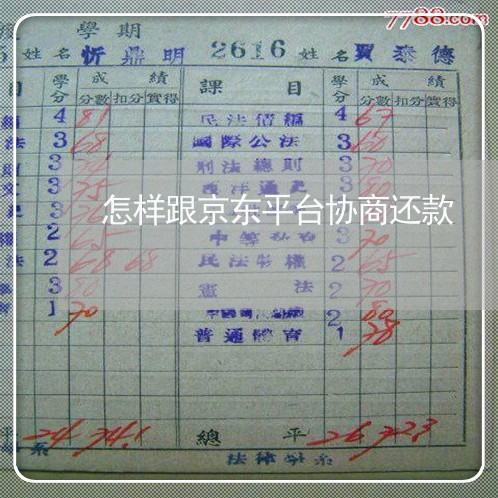 7788.com
學期
姓名 忻鼎明 2616 姓名 賈泰德
目 學分 成績 課目 學分 成績
分數 扣分 實得 分數 扣分 實得
4 81 民法債編 4 67
法 3 68 國際公法 3 60
3 刑法總則 3 70
3 75 西洋通史 3 80
怎样跟京东平台协商还款
2 65 3 70
法 2 68 68 民法物權 2 65
3 80 憲法 2 70
1 70 2 80
普通體育 1 78
平 24 74.1 總平 26 72.3
系 法律學系